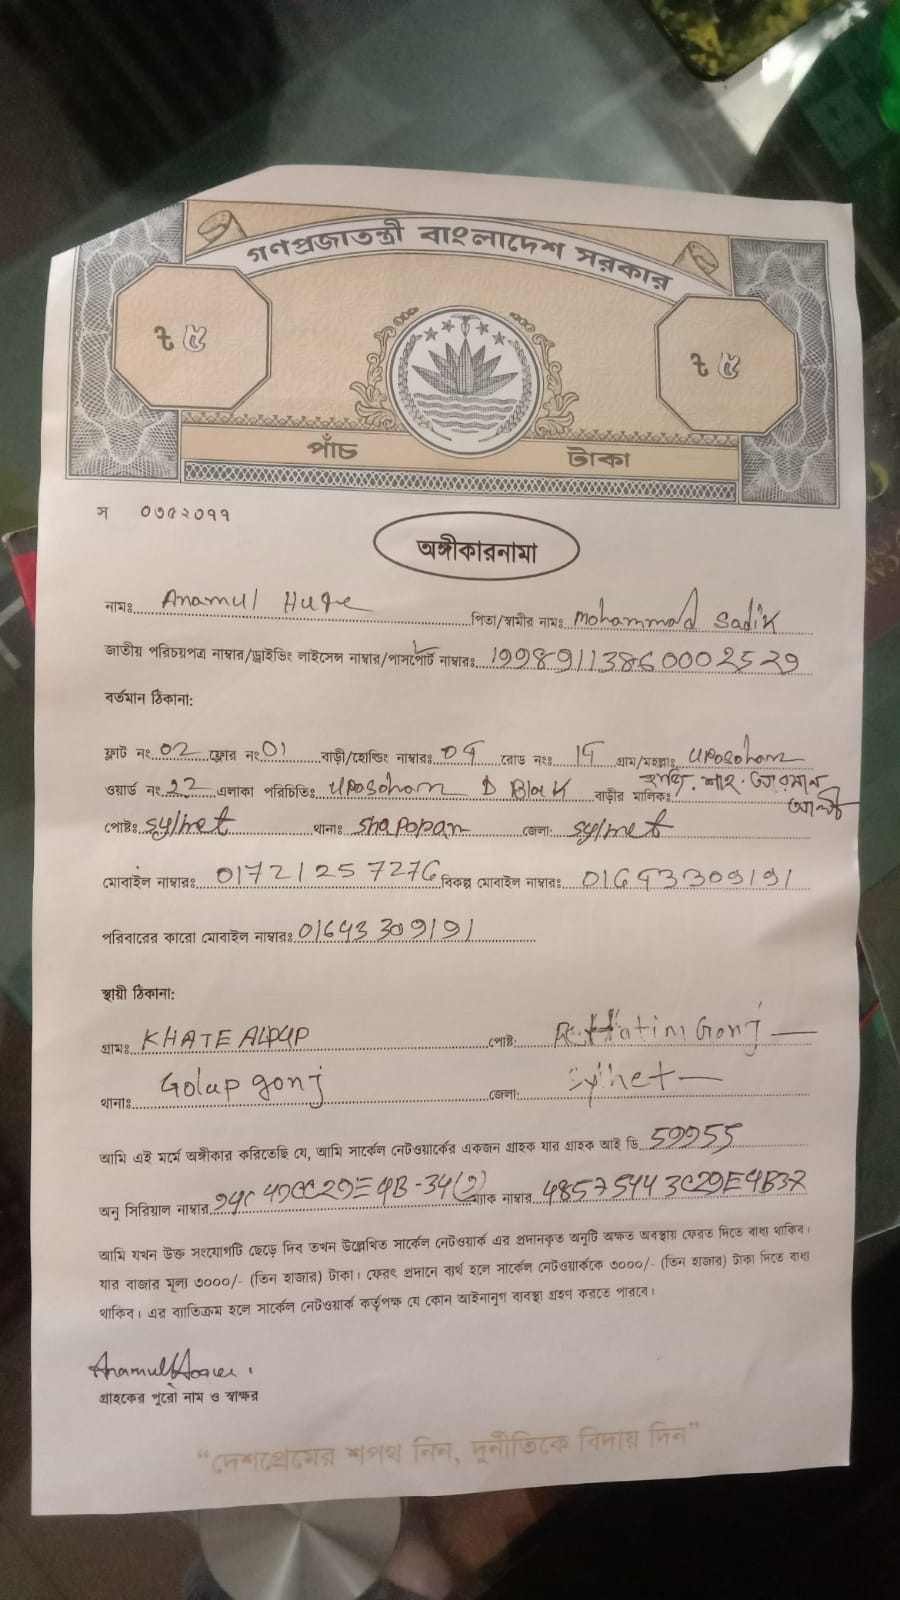 গণপ্রজাতন্ত্রী বাংলাদেশ সরকার
৳ ৫ ৳ ৫
পাঁচ টাকা
স ০৩৫২০৭৭
অঙ্গীকারনামা
নামঃ Anamul Huqe পিতা/স্বামীর নাম: Mohammad Sadik
জাতীয় পরিচয়পত্র নাম্বার/ড্রাইভিং লাইসেন্স নাম্বার/পাসপোর্ট নাম্বার: 19989113860002529
বর্তমান ঠিকানা:
ফ্লাট নং 02 ফ্লোর নং 01 বাড়ী/হোল্ডিং নাম্বারঃ রোড নংঃ গ্রাম/মহল্লাঃ Uposohom
ওয়ার্ড নং 22 এলাকা পরিচিতিঃ Uposohom D Block বাড়ীর মালিকঃ শাহ
পোষ্টঃ Sylhet থানাঃ Shapopan জেলা: Sylhet
মোবাইল নাম্বারঃ 01721257276 বিকল্প মোবাইল নাম্বারঃ 01643309191
পরিবারের কারো মোবাইল নাম্বারঃ 01643309191
স্থায়ী ঠিকানা:
গ্রামঃ পোষ্ট: Gonj
থানাঃ Golapgonj জেলা: Sylhet
আমি এই মর্মে অঙ্গীকার করিতেছি যে, আমি সার্কেল নেটওয়ার্কের একজন গ্রাহক যার গ্রাহক আই ডি 59955
অনু সিরিয়াল নাম্বার ম্যাক নাম্বার
আমি যখন উক্ত সংযোগটি ছেড়ে দিব তখন উল্লেখিত সার্কেল নেটওয়ার্ক এর প্রদানকৃত অনুটি অক্ষত অবস্থায় ফেরত দিতে বাধ্য থাকিব।
যার বাজার মূল্য ৩০০০/- (তিন হাজার) টাকা। ফেরৎ প্রদানে ব্যর্থ হলে সার্কেল নেটওয়ার্ককে ৩০০০/- (তিন হাজার) টাকা দিতে বাধ্য
থাকিব। এর ব্যতিক্রম হলে সার্কেল নেটওয়ার্ক কর্তৃপক্ষ যে কোন আইনানুগ ব্যবস্থা গ্রহণ করতে পারবে।
গ্রাহকের পুরো নাম ও স্বাক্ষর
“দেশপ্রেমের শপথ নিন, দুর্নীতিকে বিদায় দিন”